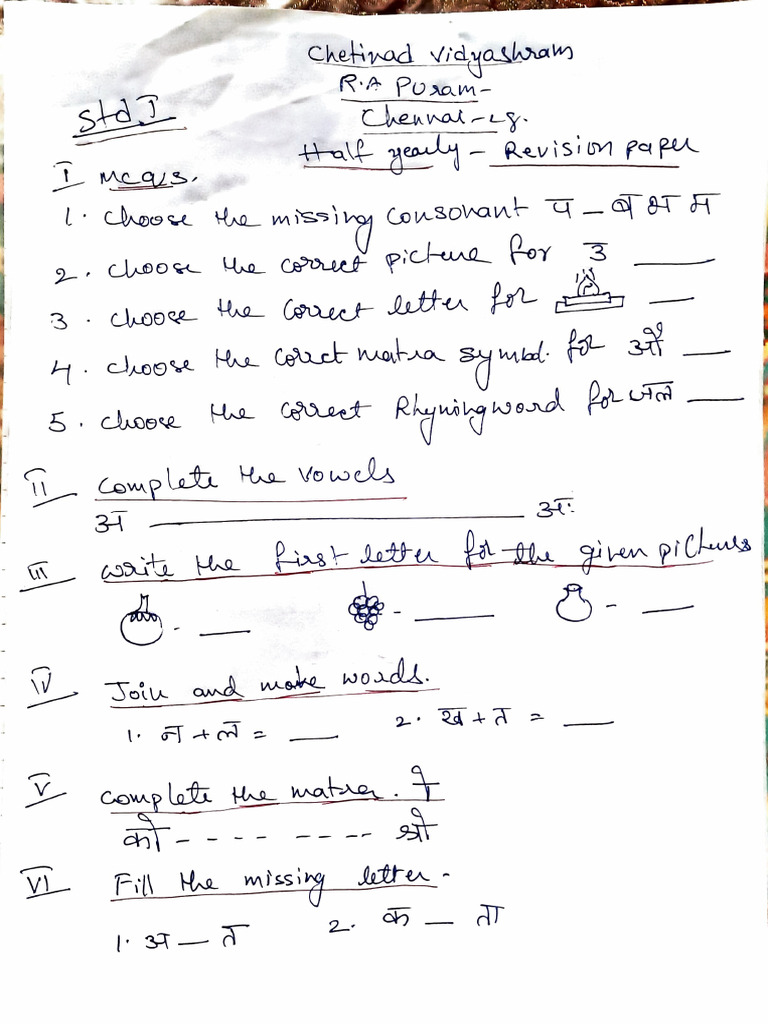 Chetinad Vidyashram
R.A Puram-
Std I
Chennai-28.
Half yearly - Revision paper
I MCQ/S.
1. Choose the missing consonant प _ ब भ म
2. Choose the correct picture for उ ____
3. Choose the correct letter for ___
4. Choose the corrct matra symbol. for औ ___
5. Choose the correct Rhyning word for जल ____
II Complete the vowels
अ ____________ अः
III Write the first letter for the given pictures
- ___ - ____ - ___
IV Join and make words.
1. न + ल = ___ 2. ख + त = ___
V Complete the matra. ो
को - - - - - - - - श्रो
VI Fill the missing letter -
1. अ __ त 2. क __ ता